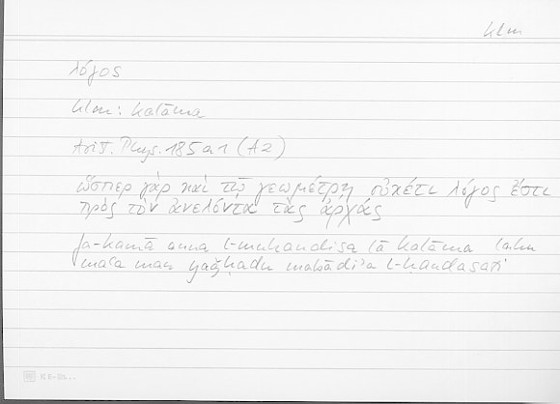 klm
λόγος
klm: kalāma
Arist. Phys. 185a1 (A2)
ὥσπερ γὰρ καὶ τῷ γεωμέτρῃ οὐκέτι λόγος ἔστι
πρὸς τὸν ἀνελόντα τὰς ἀρχάς
fa-kamā anna l-muhandisa lā kalāma lahu
maʿa man yaǧḥadu mabādiʾa l-handasati